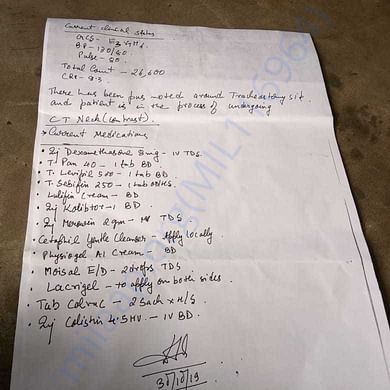 Current clinical status
GCS - E3 VTM4
BP - 130/60
Pulse - 80
Total Count - 26,600
CRP - 9.3
There has been pus noted around Tracheostomy site
and patient is in the process of undergoing
CT Neck (contrast).
Current Medications
• Inj Dexamethasone 8mg - IV TDS
• T. Pan 40 - 1 tab BD
• T. Levipil 500 - 1 tab BD
• T. Sebifin 250 - 1 tab
• Cream - BD
• Inj - 1 BD
• Inj Meronem 2gm - IV TDS
• Cetaphil Gentle Cleanser - Apply locally
• Physiogel AI Cream - BD
• Moisol E/D - 2 drops TDS
• Lacrigel - to apply on both sides
• Tab - 2 Sach x H/S
• Inj Colistin 4.5MU - IV BD
30/10/19